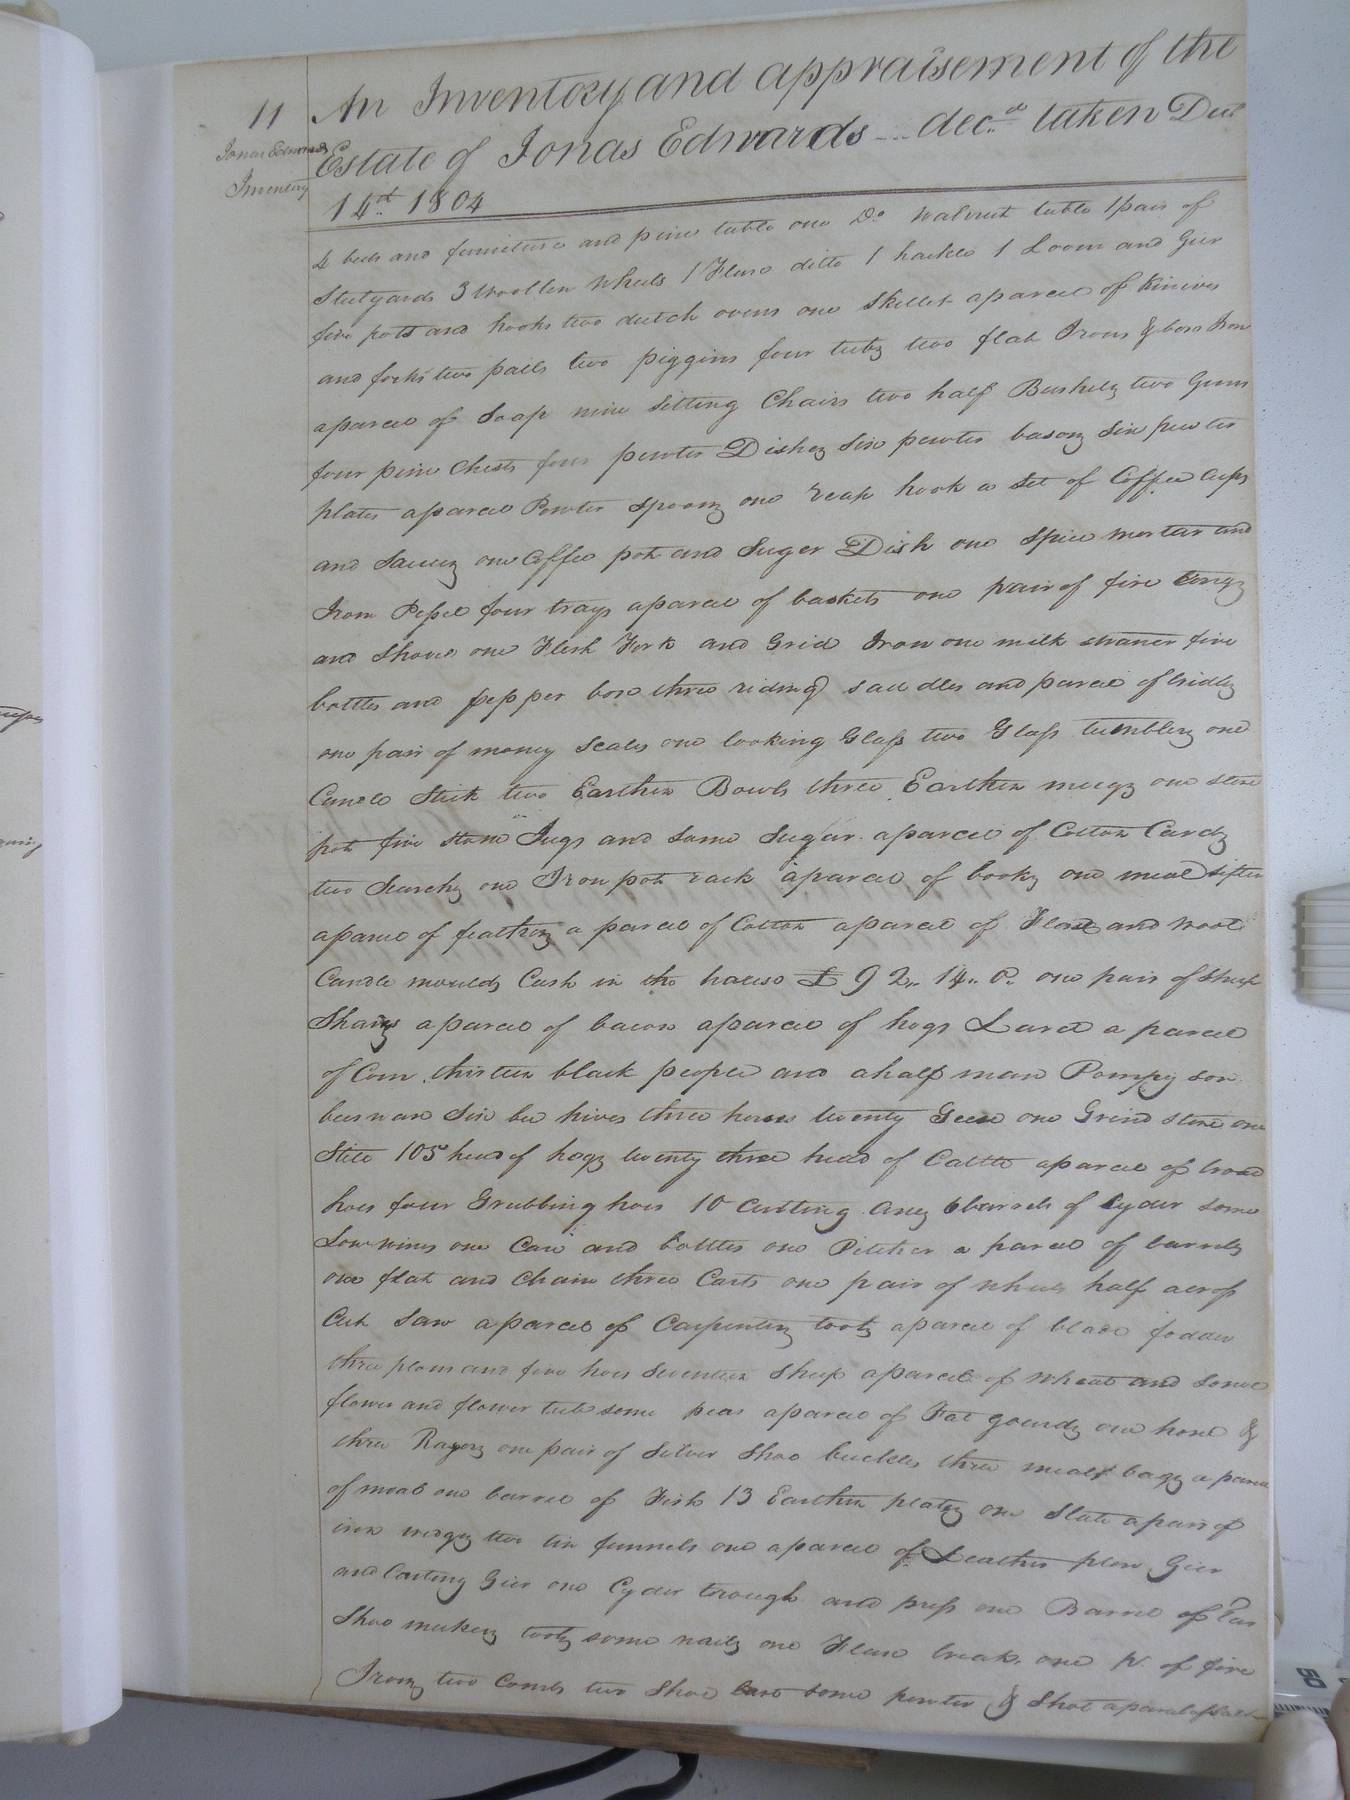 11
Jonas Edwards
Inventory
An Inventory and appraisement of the
Estate of Jonas Edwards decd taken
14th 1804
4 beds and furniture and pine table one Do Walnut table 1 pair of
Stilyards 3 woollen wheels 1 Flax ditto 1 hackle 1 Loom and Gier
five pots and hooks two dutch ovens one Skillet a parcel of Knives
and forks two pails two piggins four tubs two flat Irons & box Iron
a parcel of Soap nine Sitting Chairs two half Bushels two Guns
four pine Chests four pewter Dishes Six pewter basons Six pewter
plates a parcel Pewter Spoons one reap hook a Set of Coffee Cups
and Saucers one Coffee pot and Suger Dish one Spice mortar and
Iron Pessel four trays a parcel of baskets one pair of fire tongs
and Shovel one Flesh Fork and Grid Iron one milk straner five
bottles and pepper box three riding saddles and parcel of bridles
one pair of money Scales one looking Glass two Glass tumblers one
Candle Stick two Earthen Bowls three Earthen mugs one stone
pot five stone Jugs and Some Sugar a parcel of Cotton Cards
two Searchs one Iron pot rack a parcel of books one meal sifter
a parcel of feathers a parcel of Cotton a parcel of Flax and wool
Candle moulds Cash in the house £ 92,, 14,, 0,, one pair of Sheep
Shears a parcel of bacon a parcel of hogs Lard a parcel
of Corn thirteen black people and a half man Pompy son
bees wax Six bee hives three horses twenty Geese one Grind stone one
Still 105 head of hogs twenty three head of Cattle a parcel of broad
hoes four Grubbing hoes 10 Cutting axes 6 barrels of Cyder some
Low wines one Case and bottles one Pitcher a parcel of barrels
one flat and Chain three Carts one pair of wheels half a cross
Cut Saw a parcel of Carpenters tools a parcel of blade fodder
three plows and five hoes Seventeen Sheep a parcel of wheat and some
flower and flower tub some peas a parcel of Fat gourds one hone &
three Razors one pair of Silver Shoe buckles three meal bags a parcel
of meal one barrel of Fish 13 Earthen plates one Slate a pair of
iron wedges two tin funnels one a parcel of Leather plow Gier
and Carting Gier one Cyder trough and press one Barrel of Tar
Shoe makers tools some nails one Flax break one pr of fire
Irons two Combs two Shoe some pewter & Shot a parcel of